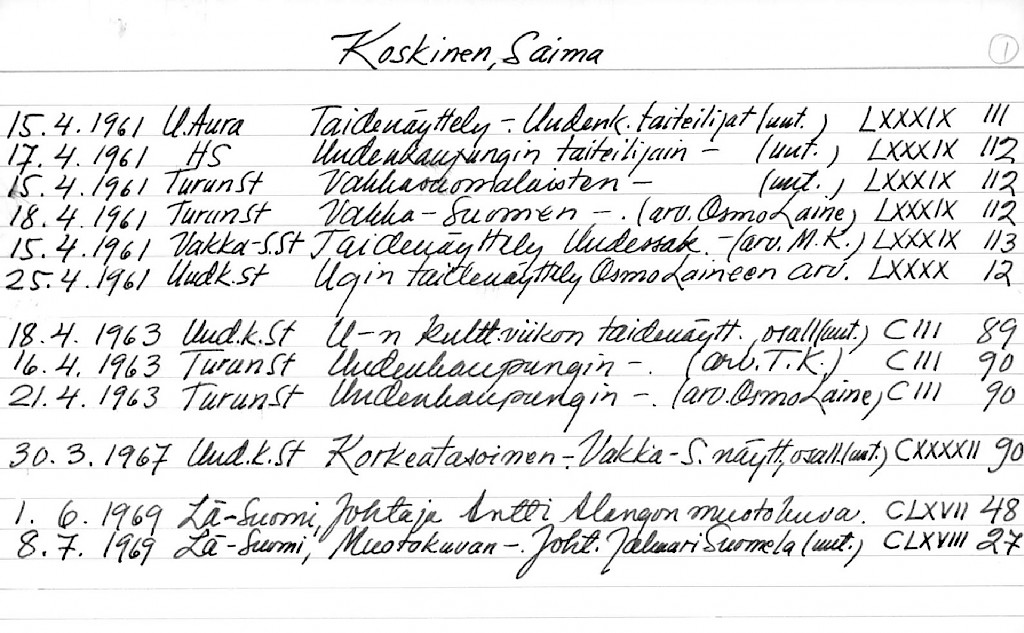 Koskinen, Saima
1
15.4.1961 U.Aura Taidenäyttely -. Uudenk. taiteilijat (uut.) LXXXIX 111
17.4.1961 HS Uudenkaupungin taiteilijain - (uut.) LXXXIX 112
15.4.1961 Turun St Vakkasuomalaisten - (uut.) LXXXIX 112
18.4.1961 Turun St Vakka-Suomen -. (arv. Osmo Laine) LXXXIX 112
15.4.1961 Vakka-S.St Taidenäyttely Uudessak. -(arv. M.K.) LXXXIX 113
25.4.1961 Uudk.st Ugin taidenäyttely Osmo Laineen arv. LXXXX 12
18.4.1963 Uud.k.St U-n kultt.viikon taidenäytt., osall(uut.) CIII 89
16.4.1963 Turun St Uudenkaupungin -. (arv. T.K.) CIII 90
21.4.1963 Turun St Uudenkaupungin -. (arv. Osmo Laine) CIII 90
30.3.1967 Uud.k.St Korkeatasoinen -. Vakka-S. näytt, osall.(uut.) CXXXXII 90
1.6.1969 Lä-Suomi, Johtaja Antti Alangon muotokuva. CLXVII 48
8.7.1969 Lä-Suomi, Muotokuvan -. Joht. Jalmari Suomela (uut.) CLXVIII 27